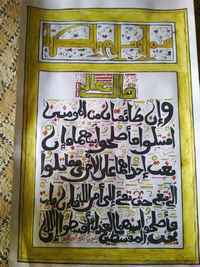 قال تعالى
وإن طائفتان من المؤمنين
اقتتلوا فأصلحوا بينهما فإن
بغت إحداهما على الأخرى فقاتلوا
التي تبغي حتى تفيء إلى أمر الله فإن فاءت
فأصلحوا بينهما بالعدل وأقسطوا إن الله
يحب المقسطين